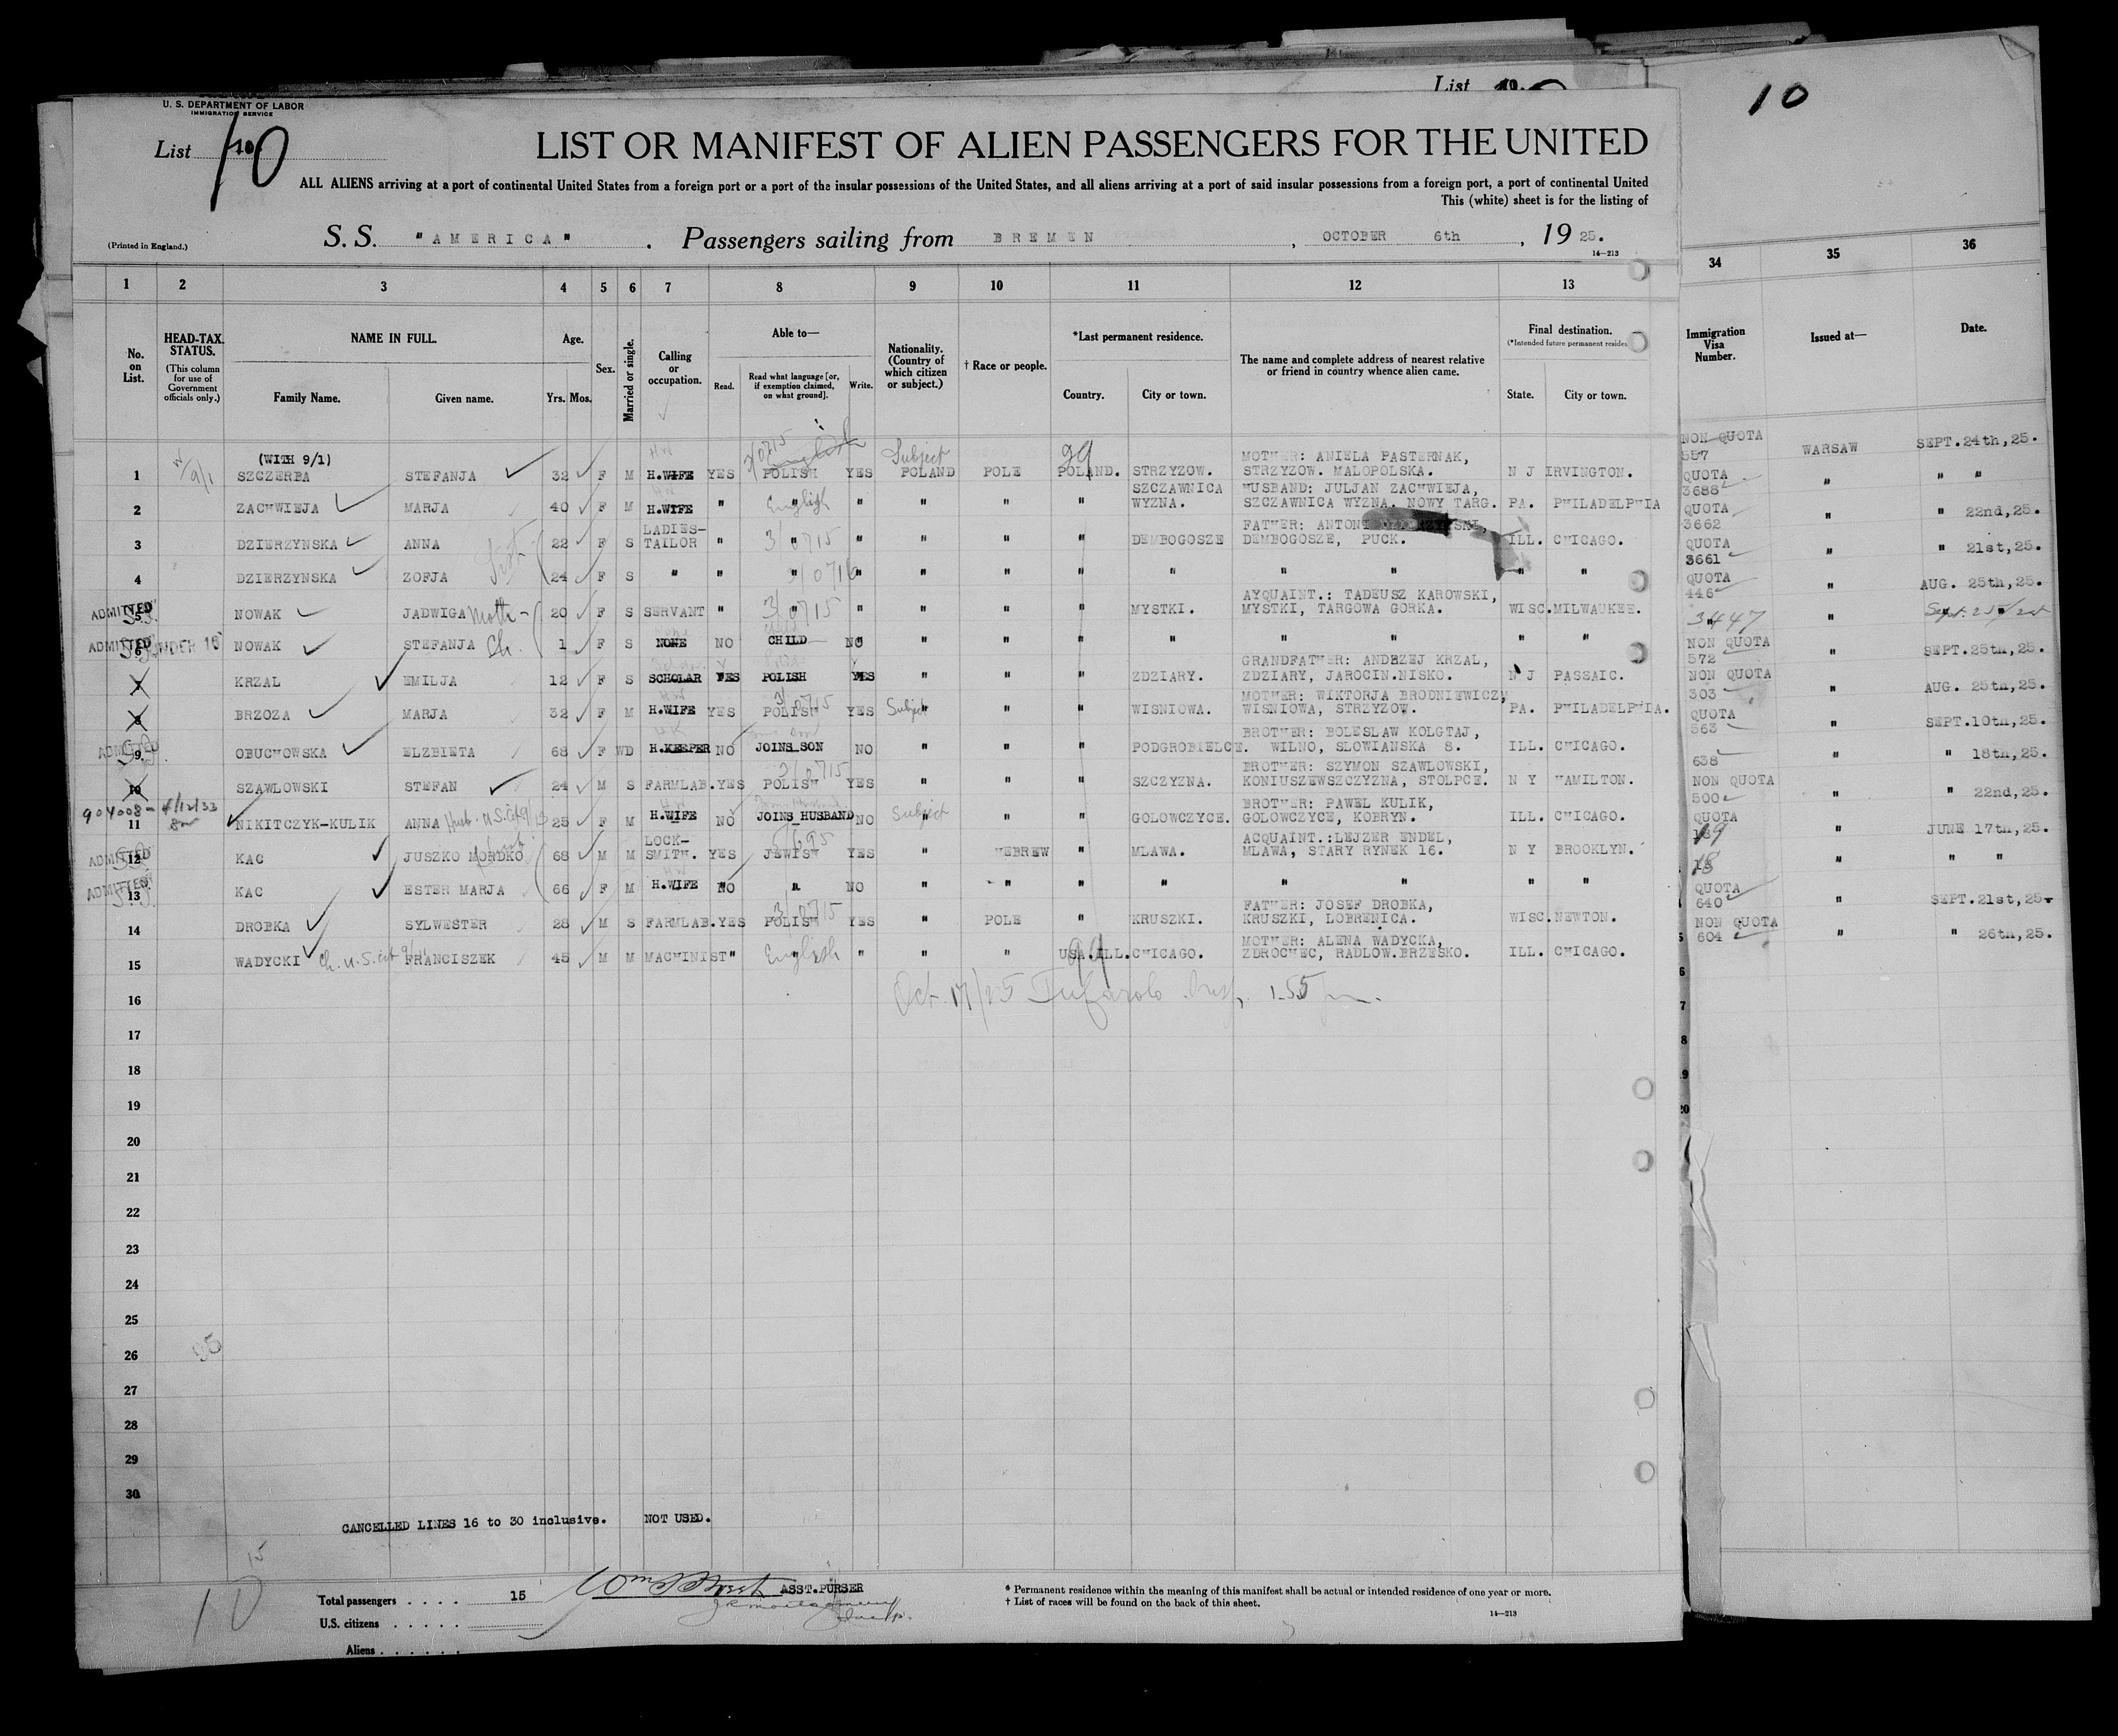 U. S. DEPARTMENT OF LABOR
IMMIGRATION SERVICE
List 10
List
10
LIST OR MANIFEST OF ALIEN PASSENGERS FOR THE UNITED
ALL ALIENS arriving at a port of continental United States from a foreign port or a port of the insular possessions of the United States, and all aliens arriving at a port of said insular possessions from a foreign port, a port of continental United
This (white) sheet is for the listing of
(Printed in England.)
S. S. "AMERICA" . Passengers sailing from BREMEN , OCTOBER 6th , 19 25.
14—213
1 2 3 4 5 6 7 8 9 10 11 12 13 34 35 36
No. on List.
HEAD-TAX STATUS.
(This column for use of Government officials only.)
NAME IN FULL.
Family Name. Given name.
Age.
Yrs. Mos.
Sex.
Married or single.
Calling or occupation.
Able to—
Read. Read what language [or, if exemption claimed, on what ground]. Write.
Nationality. (Country of which citizen or subject.)
† Race or people.
*Last permanent residence.
Country. City or town.
The name and complete address of nearest relative or friend in country whence alien came.
Final destination.
(*Intended future permanent residence
State. City or town.
Immigration Visa Number.
Issued at—
Date.
(WITH 9/1) MOTHER: ANIELA PASTERNAK, NON QUOTA
1 9/1 SZCZERBA STEFANJA 32 F M H.WIFE YES POLISH YES Subject POLAND POLE POLAND. STRZYZOW. STRZYZOW. MALOPOLSKA. N J IRVINGTON. 557 WARSAW SEPT.24th,25.
SZCZAWNICA HUSBAND: JULJAN ZACHWIEJA, QUOTA
2 ZACHWIEJA MARJA 40 F M H.WIFE " " English " " " " WYZNA. SZCZAWNICA WYZNA. NOWY TARG. PA. PHILADELPHIA 3688 " " "
LADIES- FATHER: ANTONI QUOTA
3 DZIERZYNSKA ANNA 22 F S TAILOR " " 3/0715 " " " " DEMBOGOSZE DEMBOGOSZE, PUCK. ILL. CHICAGO. 3662 " " 22nd,25.
QUOTA
4 DZIERZYNSKA ZOFJA 24 F S " " " " " " " " " " " " 3661 " " 21st,25.
ADMITTED AYQUAINT.: TADEUSZ KAROWSKI, QUOTA
5 NOWAK JADWIGA Moth 20 F S SERVANT " " 3/0715 " " " " MYSTKI. MYSTKI, TARGOWA GORKA. WISC. MILWAUKEE. 446 " AUG. 25th,25.
ADMITTED UNDER 16
6 NOWAK STEFANJA Ch. 1 F S NONE NO CHILD NO " " " " " " " " 3447 "
GRANDFATHER: ANDRZEJ KRZAL, NON QUOTA
7 KRZAL EMILJA 12 F S SCHOLAR YES POLISH YES " " " ZDZIARY. ZDZIARY, JAROCIN.NISKO. N J PASSAIC. 572 " SEPT.25th,25.
MOTHER: WIKTORJA BRODNIEWICZ, NON QUOTA
8 BRZOZA MARJA 32 F M H.WIFE YES POLISH 3/0715 YES Subject " " " WISNIOWA. WISNIOWA, STRZYZOW. PA. PHILADELPHIA. 303 " AUG. 25th,25.
ADMITTED BROTHER: BOLESLAW KOLGTAJ, QUOTA
9 OBUCHOWSKA ELZBIETA 68 F WD H.KEEPER NO JOINS SON NO " " " PODGROBIELCE. WILNO, SLOWIANSKA 8. ILL. CHICAGO. 563 " SEPT.10th,25.
BROTHER: SZYMON SZAWLOWSKI,
10 SZAWLOWSKI STEFAN 24 M S FARMLAB. YES POLISH 3/0715 YES " " " SZCZYZNA. KONIUSZEWSZCZYZNA, STOLPCE. N Y HAMILTON. 638 " " 18th,25.
904008- 4/12/33 BROTHER: PAWEL KULIK, NON QUOTA
11 NIKITCZYK-KULIK ANNA Husb. U.S. Cit 25 F M H.WIFE NO JOINS HUSBAND NO Subject " " " GOLOWCZYCE. GOLOWCZYCE, KOBRYN. ILL. CHICAGO. 500 " " 22nd,25.
ADMITTED LOCK- ACQUAINT.:LEJZER ENDEL, QUOTA
12 KAC JUSZKO MORDKO 68 M M SMITH. YES JEWISH YES " HEBREW " MLAWA. MLAWA, STARY RYNEK 16. N Y BROOKLYN. 19 " JUNE 17th,25.
ADMITTED
13 KAC ESTER MARJA 66 F M H.WIFE NO " NO " " " " " " " " 18 " " "
FATHER: JOSEF DROBKA, QUOTA
14 DROBKA SYLWESTER 28 M S FARMLAB. YES POLISH 3/0715 YES " POLE " KRUSZKI. KRUSZKI, LOBRENICA. WISC. NEWTON. 640 " SEPT.21st,25.
MOTHER: ALENA WADYCKA, NON QUOTA
15 WADYCKI Ch. U.S. Cit FRANCISZEK 45 M M MACHINIST " " English " " " USA.ILL. CHICAGO. ZDROCHEC, RADLOW.BRZESKO. ILL. CHICAGO. 604 " " 26th,25.
16 Oct. 17/25
17
18
19
20
21
22
23
24
25
26
27
28
29
30
CANCELLED LINES 16 to 30 inclusive. NOT USED.
15
10
Total passengers . . . . 15
ASST.PURSER
U.S. citizens . . . . .
Aliens . . . . . .
* Permanent residence within the meaning of this manifest shall be actual or intended residence of one year or more.
† List of races will be found on the back of this sheet.
14—213